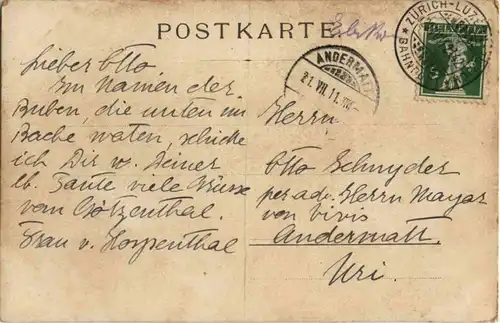 POSTKARTE
ZÜRICH-LUZ
BAHNP
HELVETIA
ANDERMATT
21.VII.11. VIII-
Lieber Otto
Im Namen der
Buben, die unten im
Bache waten, schicke
ich Dir v. Deiner
lb. Tante viele Grüsse
vom Götzenthal.
Frau v.
Herrn
Otto Schnyder
per adr. Herrn Mayor
von Vivis
Andermatt.
Uri.